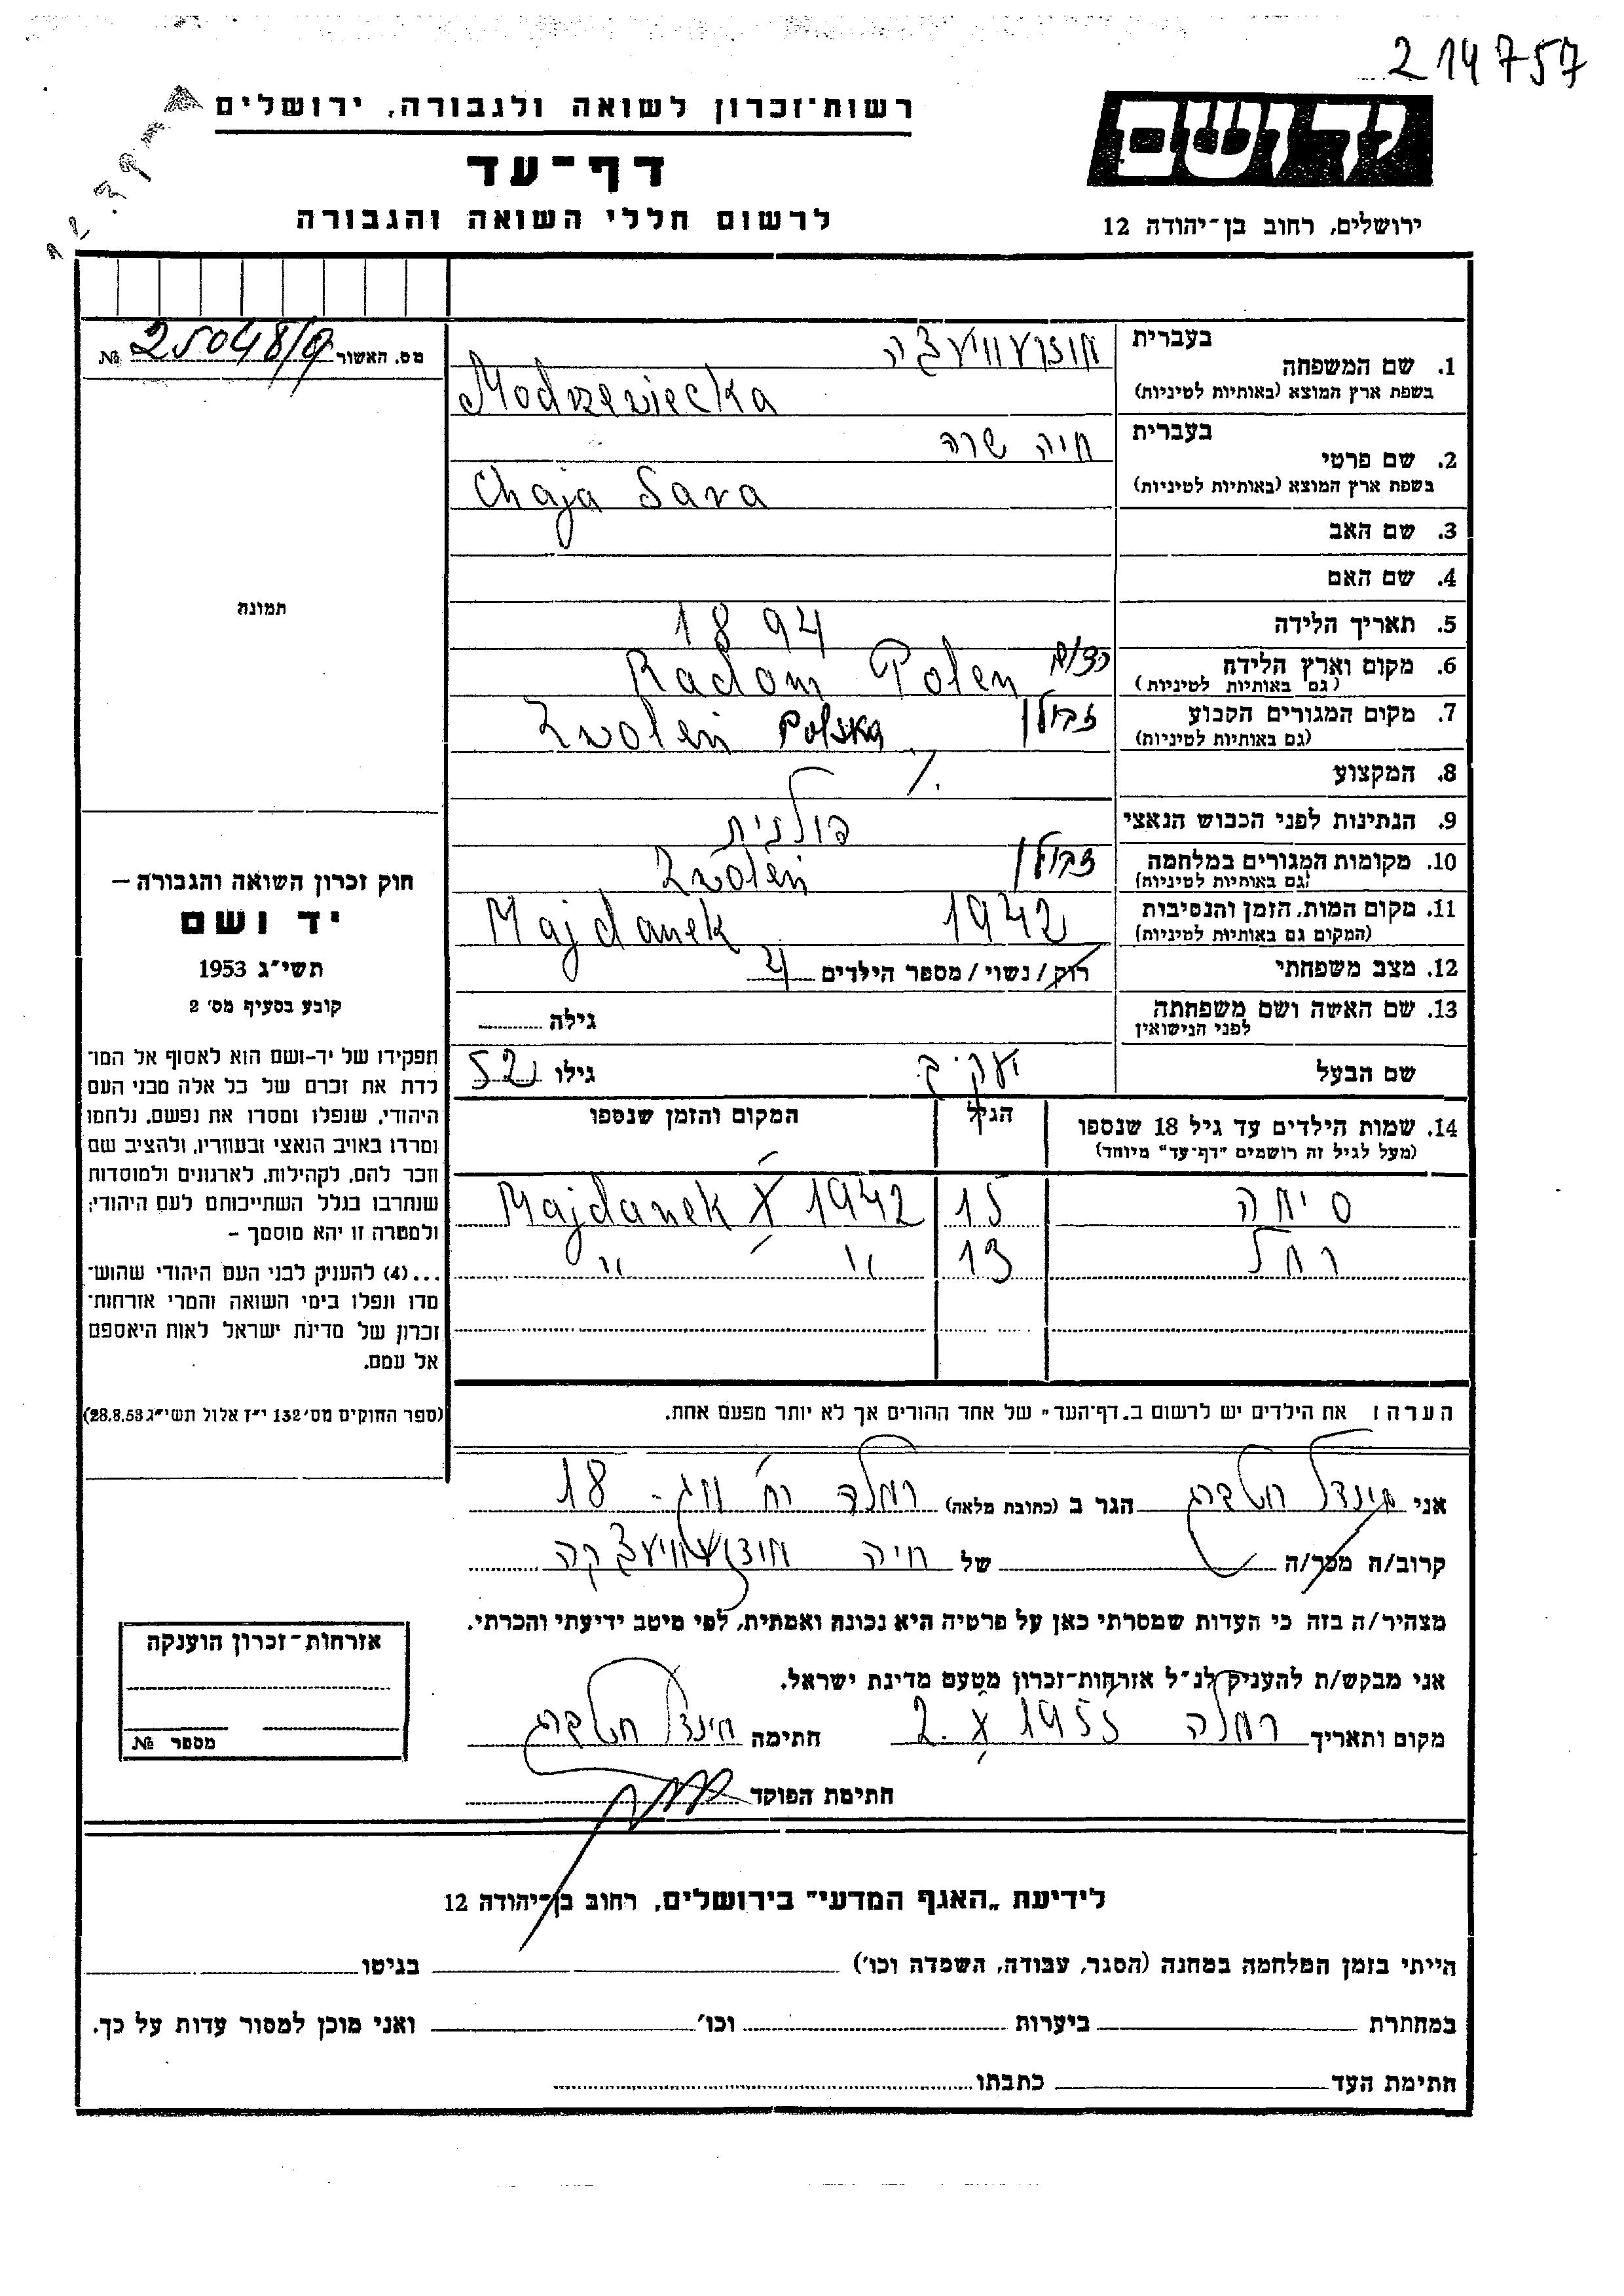 214757
רשות־זכרון לשואה ולגבורה, ירושלים
יד ושם
דף־עד
לרשום חללי השואה והגבורה
ירושלים, רחוב בן־יהודה 12
מס. האשור 25048/9 №
בעברית
1. שם המשפחה
בשפת ארץ המוצא (באותיות לטיניות) Modrzewiecka
בעברית חיה שרה
2. שם פרטי
בשפת ארץ המוצא (באותיות לטיניות) Chaja Sara
3. שם האב
4. שם האם
5. תאריך הלידה 1894
6. מקום וארץ הלידה Radom Polen
(גם באותיות לטיניות)
7. מקום המגורים הקבוע זבולין Zwoleń Polska
(גם באותיות לטיניות)
8. המקצוע
9. הנתינות לפני הכבוש הנאצי פולנית
10. מקומות המגורים במלחמה זבולין Zwoleń
(גם באותיות לטיניות)
11. מקום המות, הזמן והנסיבות 1942 Majdanek
(המקום גם באותיות לטיניות)
12. מצב משפחתי רווק/נשוי/מספר הילדים 4
13. שם האשה ושם משפחתה גילה
לפני הנישואין
שם הבעל יעקב גילו 52
14. שמות הילדים עד גיל 18 שנספו הגיל המקום והזמן שנספו
(מעל לגיל זה רושמים "דף־עד" מיוחד)
סימה 15 Majdanek X 1942
רחל 13 " "
הערה: את הילדים יש לרשום ב„דף־העד" של אחד ההורים אך לא יותר מפעם אחת.
תמונה
חוק זכרון השואה והגבורה –
יד ושם
תשי"ג 1953
קובע בסעיף מס' 2
תפקידו של יד-ושם הוא לאסוף אל המו־
לדת את זכרם של כל אלה מבני העם
היהודי, שנפלו ומסרו את נפשם, נלחמו
ומרדו באויב הנאצי ובעוזריו, ולהציב שם
וזכר להם, לקהילות, לארגונים ולמוסדות
שנחרבו בגלל השתייכותם לעם היהודי;
ולמטרה זו יהא מוסמך –
...(4) להעניק לבני העם היהודי שהוש־
מדו ונפלו בימי השואה והמרי אזרחות־
זכרון של מדינת ישראל לאות היאספם
אל עמם.
(ספר החוקים מס' 132 י"ז אלול תשי"ג 28.8.53)
אני הגר ב (כתובת מלאה) רמלה 18
קרוב/ה מכר/ה של חיה
מצהיר/ה בזה כי העדות שמסרתי כאן על פרטיה היא נכונה ואמתית, לפי מיטב ידיעתי והכרתי.
אני מבקש/ת להעניק לנ"ל אזרחות־זכרון מטעם מדינת ישראל.
מקום ותאריך רמלה 2. X 1955 חתימה
חתימת הפוקד
אזרחות־זכרון הוענקה
מספר №
לידיעת „האגף המדעי" בירושלים, רחוב בן־יהודה 12
הייתי בזמן המלחמה במחנה (הסגר, עבודה, השמדה וכו') בגיטו
במחתרת ביערות וכו' ואני מוכן למסור עדות על כך.
חתימת העד כתבתו